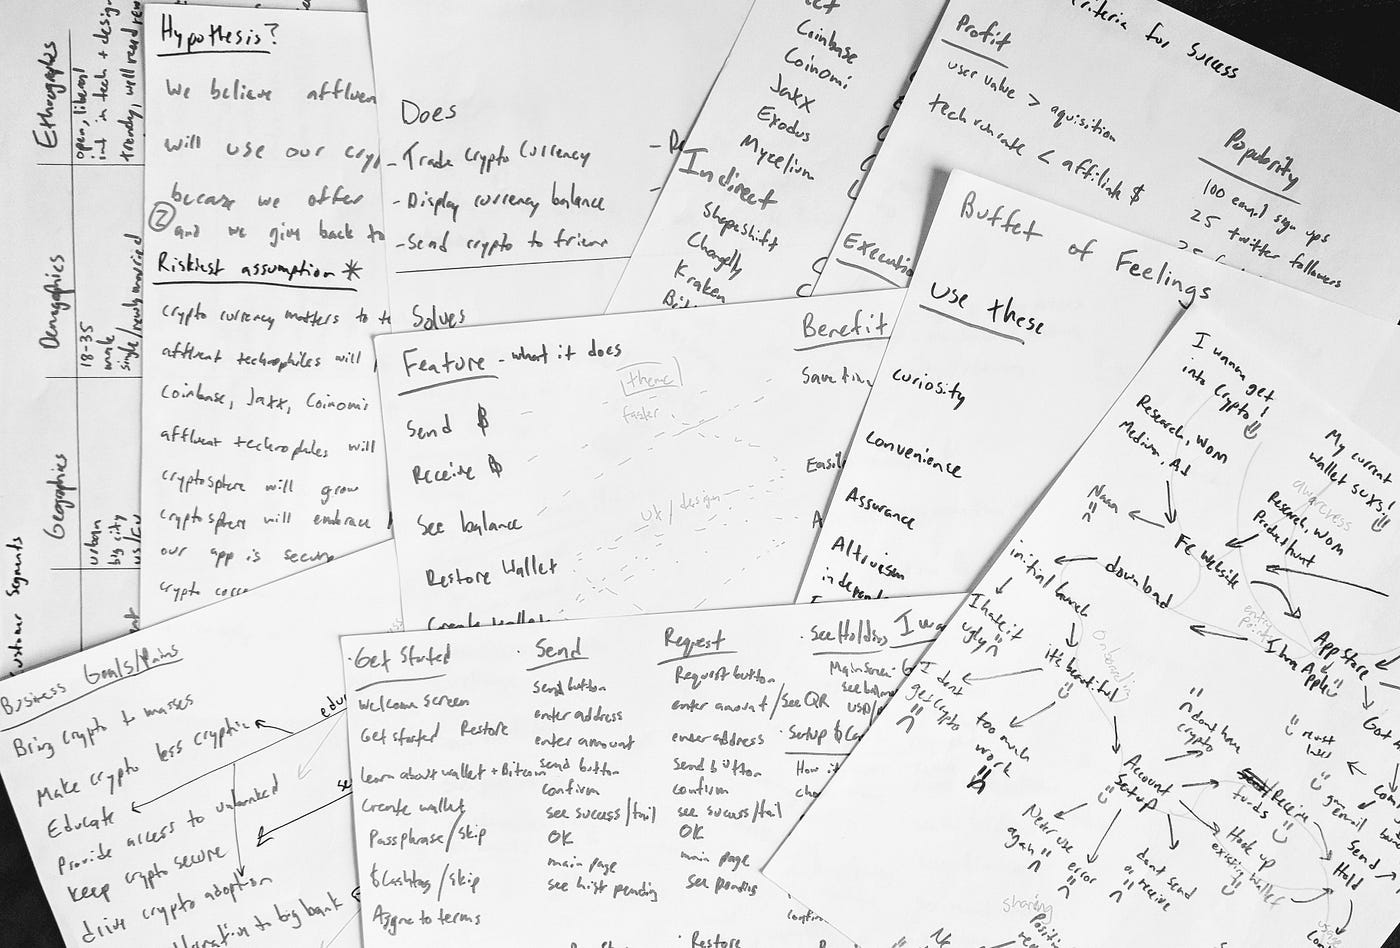 Customer Segments
Geographies
urban
big city
US/EU
Demographics
18-35
male
single, newly married
Ethnographies
open, liberal
int in tech + design
trendy, well read
Hypothesis?
We believe affluen
will use our cryp
because we offer
2 and we give back to
Riskiest assumption *
crypto currency matters to
affluent technophiles will
Coinbase, Jaxx, Coinomi
affluent technophiles will
cryptosphere will grow
cryptosphere will embrace
our app is secure
crypto
Does
- Trade Crypto Currency
- Display currency balance
- Send crypto to frien
Solves
Coinbase
Coinomi
Jaxx
Exodus
Mycelium
Indirect
Shapeshift
Changelly
Kraken
Criteria for Success
Profit
user value > aquisition
tech run rate < affiliate $
Popularity
100 email sign ups
25 twitter followers
Executio
Feature - what it does
Benefit
theme
faster
Send ₿
Receive ₿
See balance
Restore Wallet
Create Wallet
ux/design
Save tim
Easil
Buffet of Feelings
Use these
Curiosity
Convenience
Assurance
Altruism
independ
I wanna get
into Crypto!
Research, WOM
Medium, AJ
Naaa
My current
wallet suxs!
awareness
Research, WOM
Product hunt
FE website
download
entry
point
App Store
I have
Apple
initial launch
I hate it
ugly
it's beautiful
Onboarding
I dont
get crypto
too much
work
Account
Setup
dont have
crypto
must
Never use
again
error
dont send
or receive
Receive
funds
Hook up
existing wallet
email
Send
Hold
sharing
Business Goals/Pains
Bring crypto to masses
Make crypto less cryptic
Educate
Provide access to unbanked
Keep crypto secure
drive crypto adoption
to big bank
· Get Started
Welcome screen
Get started Restore
Learn about wallet + Bitcoin
Create wallet
Passphrase/skip
$Cashtag/skip
Agree to terms
· Send
send button
enter address
enter amount
send button
confirm
see success/fail
OK
main page
see hist pending
Request
Request button
enter amount/see QR
enter address
Send button
confirm
see success/fail
OK
main page
see pending
· See Holdings
Main screen
see balance
USD/
· Setup $Ca
How it
confirm
· Restore